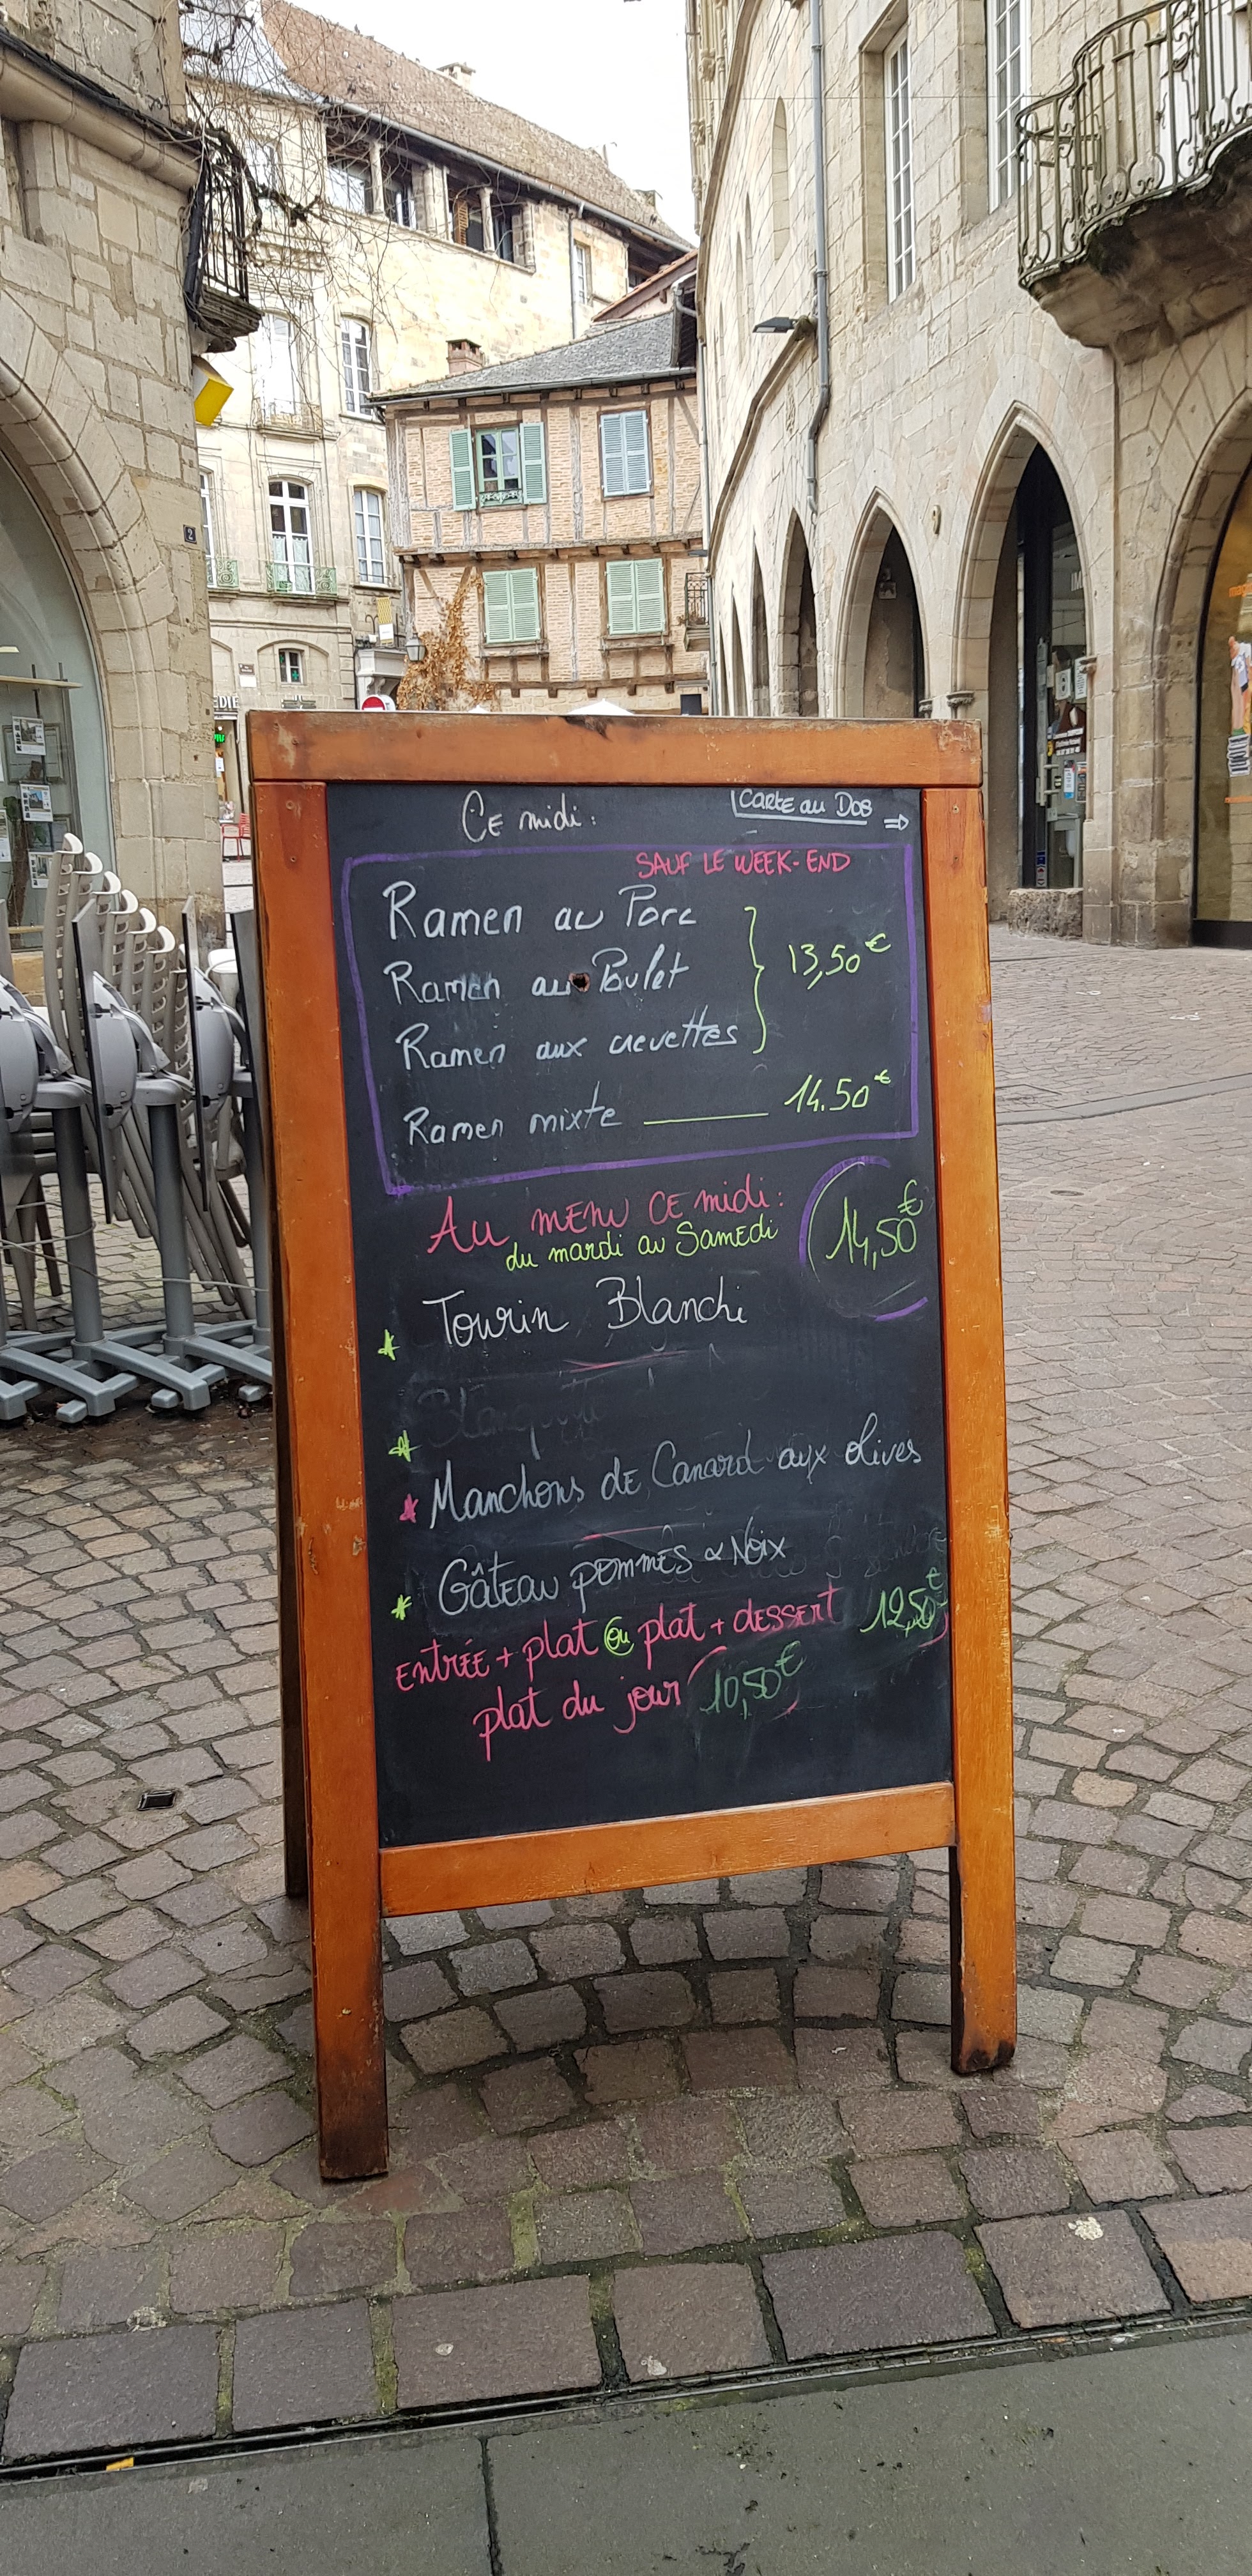 CE midi:
CARTE au DOS ⇒
SAUF LE WEEK-END
Ramen au Porc
Ramen au Poulet
Ramen aux crevettes
13,50€
Ramen mixte ——— 14.50€
Au MENU CE midi:
du mardi au Samedi
14,50€
* Tourin Blanchi
* Manchons de Canard aux olives
* Gâteau pommes & Noix
entrée + plat ou plat + dessert 12,50€
plat du jour 10,50€
2